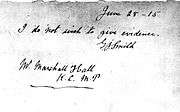 June 28 - 15
I do not wish to give evidence.
G J Smith
Mr. Marshall Hall
K. C. M P